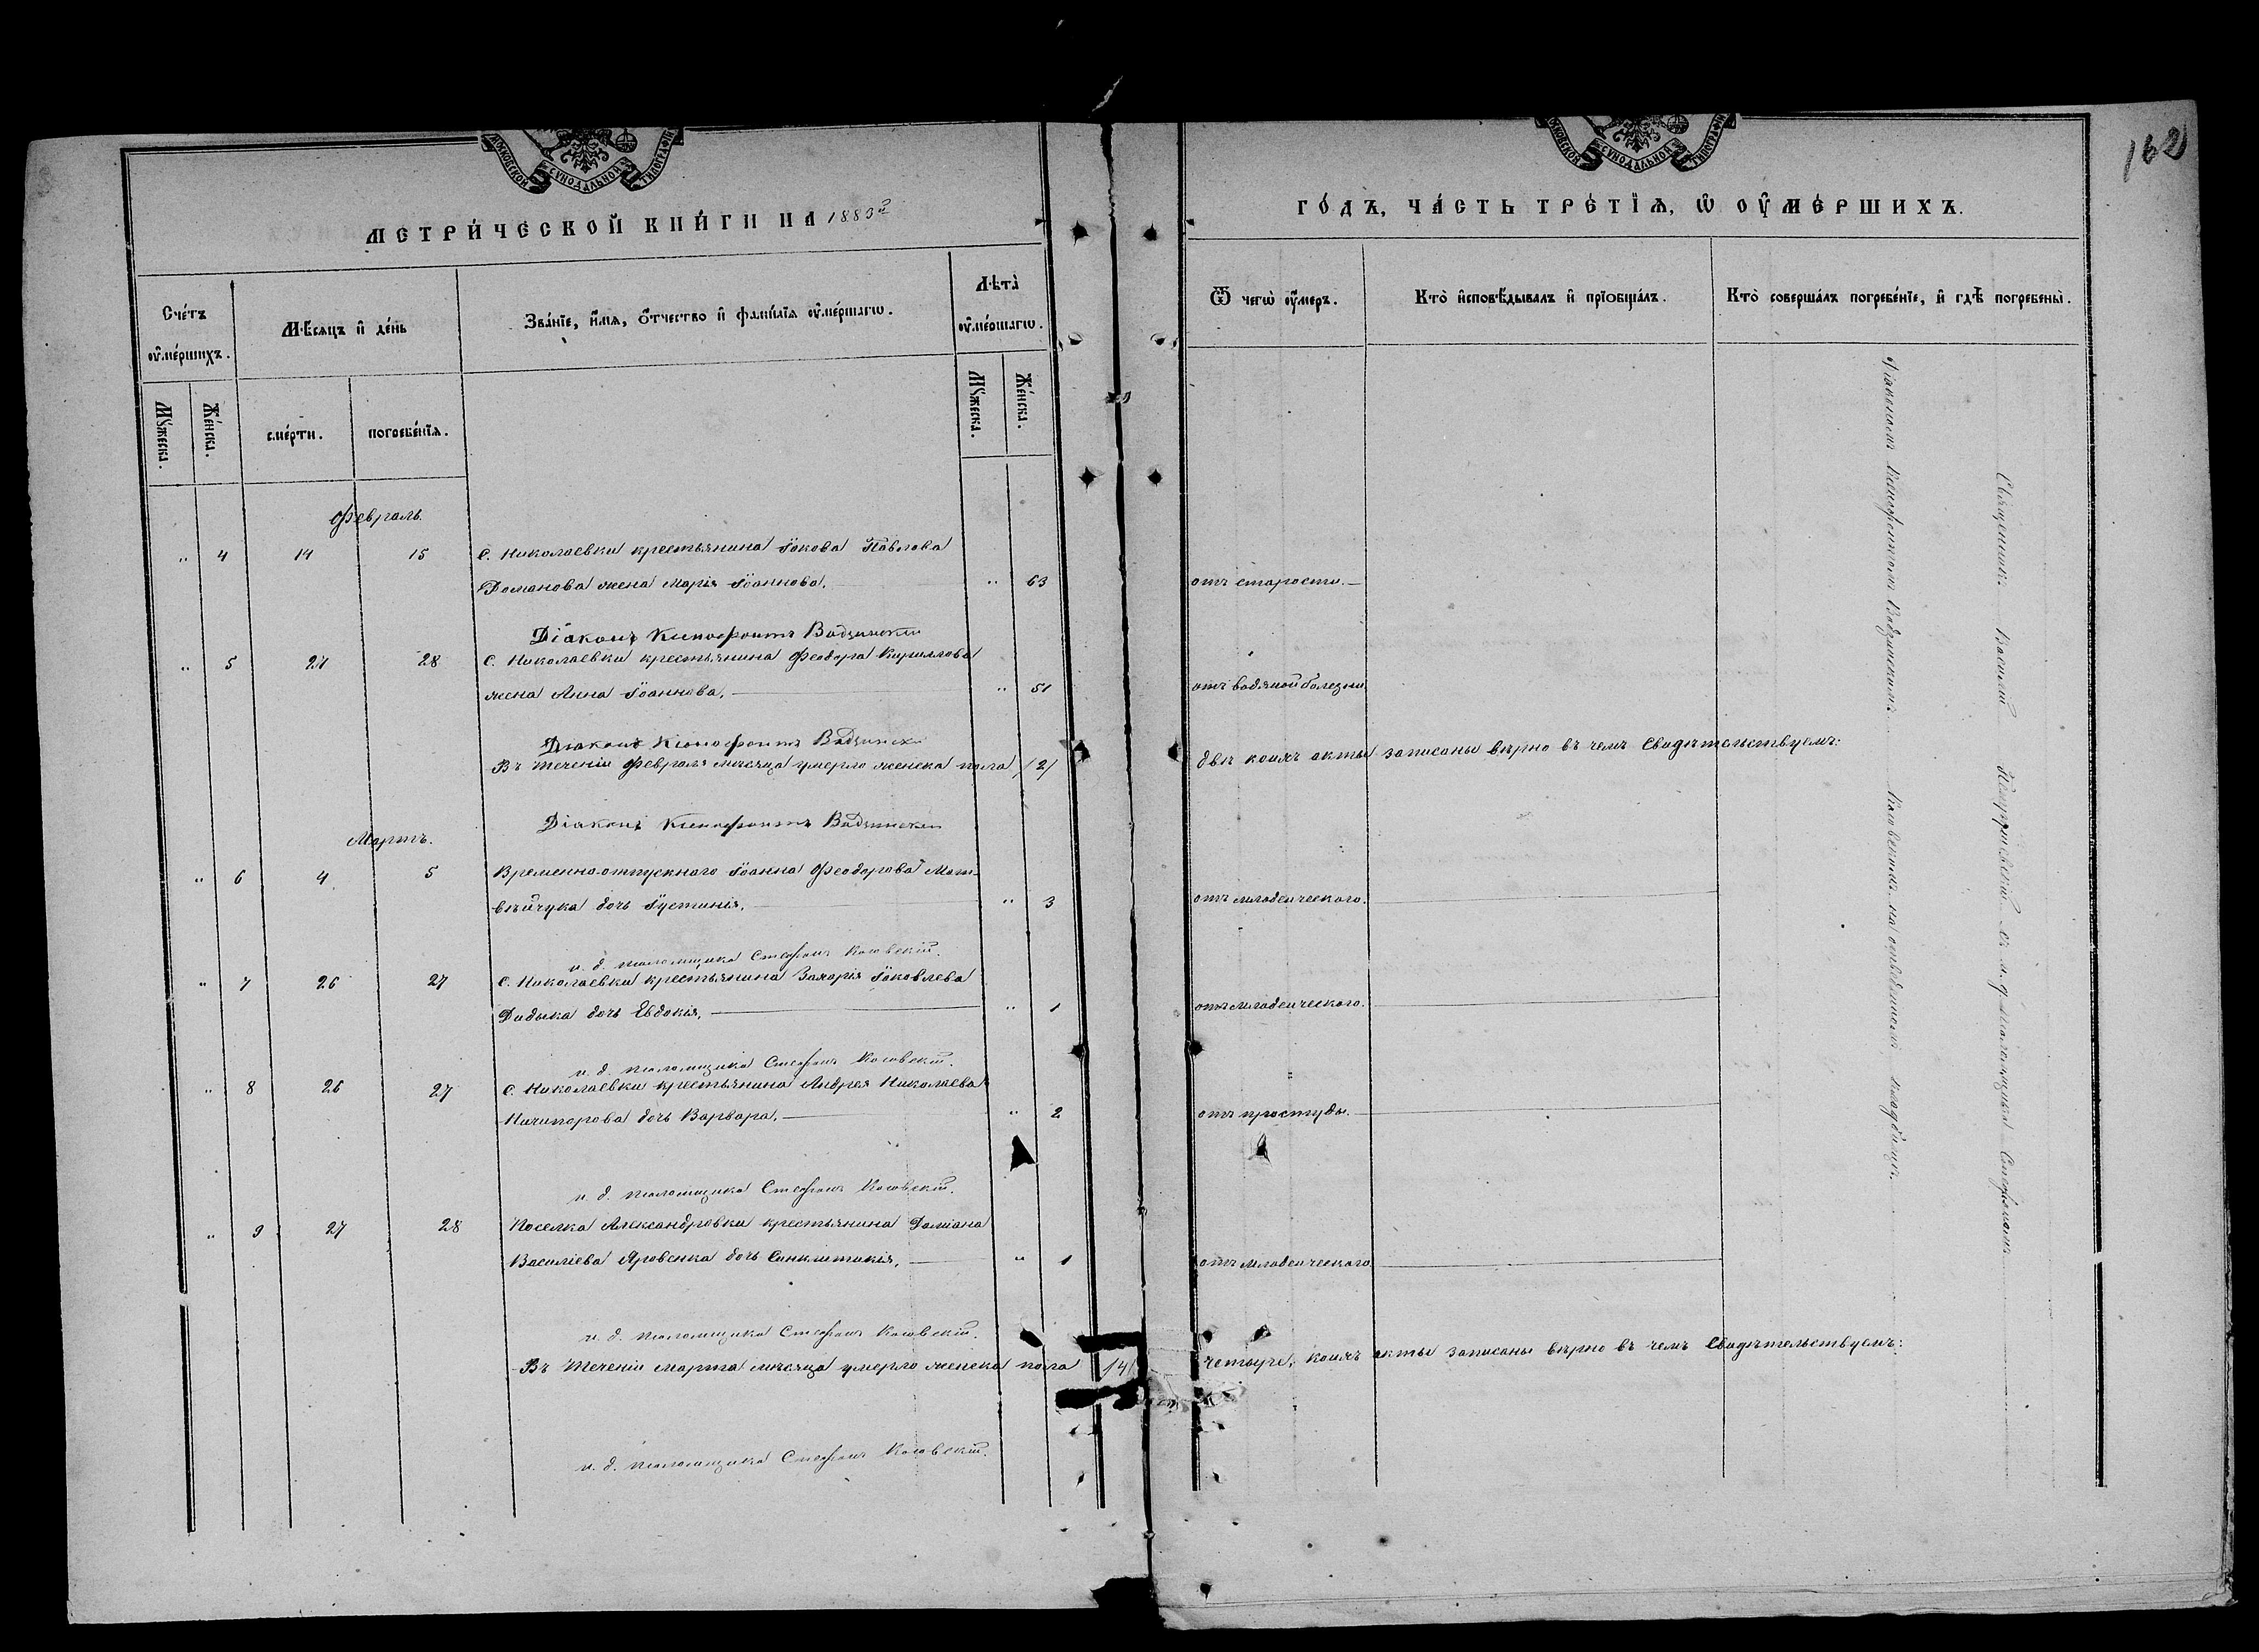 162
МОСКОВСКОЙ СѴНОДАЛЬНОЙ ТИПОГРАФІИ
МОСКОВСКОЙ СѴНОДАЛЬНОЙ ТИПОГРАФІИ
МЕТРИ́ЧЕСКОЙ КНИ́ГИ НА 1883й
ГО́ДЪ, ЧА́СТЬ ТРЕ́ТЇѦ, Ѡ ОУ҆МЕ́РШИХЪ.
Сче́тъ оу҆ме́ршихъ.
Мꙋ́жеска.
Же́нска.
Мѣ́сяцъ и҆ де́нь
сме́рти.
погребе́нїѧ.
Зва́нїе, и҆́мѧ, ѻ҆́тчество и҆ фамѝлїѧ оу҆ме́ршагѡ.
Лѣта̀ оу҆ме́ршагѡ.
Мꙋ́жеска.
Же́нска.
Ѿ чегѡ̀ оу҆́меръ.
Кто̀ и҆сповѣ́дывалъ и҆ прїобща́лъ.
Кто̀ соверша́лъ погребе́нїе, и҆ гдѣ̀ погребены̀.
Февраль.
" 4 14 15 С. Николаевки крестьянина Іакова Павлова
Романова жена Марія Іоаннова. " 63 отъ старости.
Діаконъ Ксенофонтъ Вадзинскій
" 5 27 28 С. Николаевки крестьянина Феодора Кириллова
жена Анна Іоаннова. " 51 отъ водяной болезни
Діаконъ Ксенофонтъ Вадзинскій
Въ теченіи Февраля мѣсяца умерло женска пола /2/ двѣ коихъ акты записаны вѣрно въ чемъ свидѣтельствуемъ:
Діаконъ Ксенофонтъ Вадзинскій
Мартъ.
" 6 4 5 Временно-отпускнаго Іоанна Феодорова Мат-
вѣйчука дочь Іустинія. " 3 отъ младенческаго.
и. д. псаломщика Стефанъ Косовскій.
" 7 26 27 С. Николаевки крестьянина Захарія Іаковлева
Дидыка дочь Евдокія. " 1 отъ младенческаго.
и. д. псаломщика Стефанъ Косовскій.
" 8 26 27 С. Николаевки крестьянина Андрея Николаева
Ничипорова дочь Варвара. " 2 отъ простуды.
и. д. псаломщика Стефанъ Косовскій.
" 9 27 28 Поселка Александровки крестьянина Даміана
Василіева Яровенка дочь Синклитикія. " 1 отъ младенческаго
и. д. псаломщика Стефанъ Косовскій.
Въ теченіи марта мѣсяца умерло женска пола /4/ четыре, коихъ акты записаны вѣрно въ чемъ свидѣтельствуемъ:
и. д. псаломщика Стефанъ Косовскій.
Священникъ Василій съ и. д. псаломщика Стефаномъ
Діакономъ Ксенофонтомъ Вадзинскимъ Косовскимъ на отведенномъ кладбищѣ.